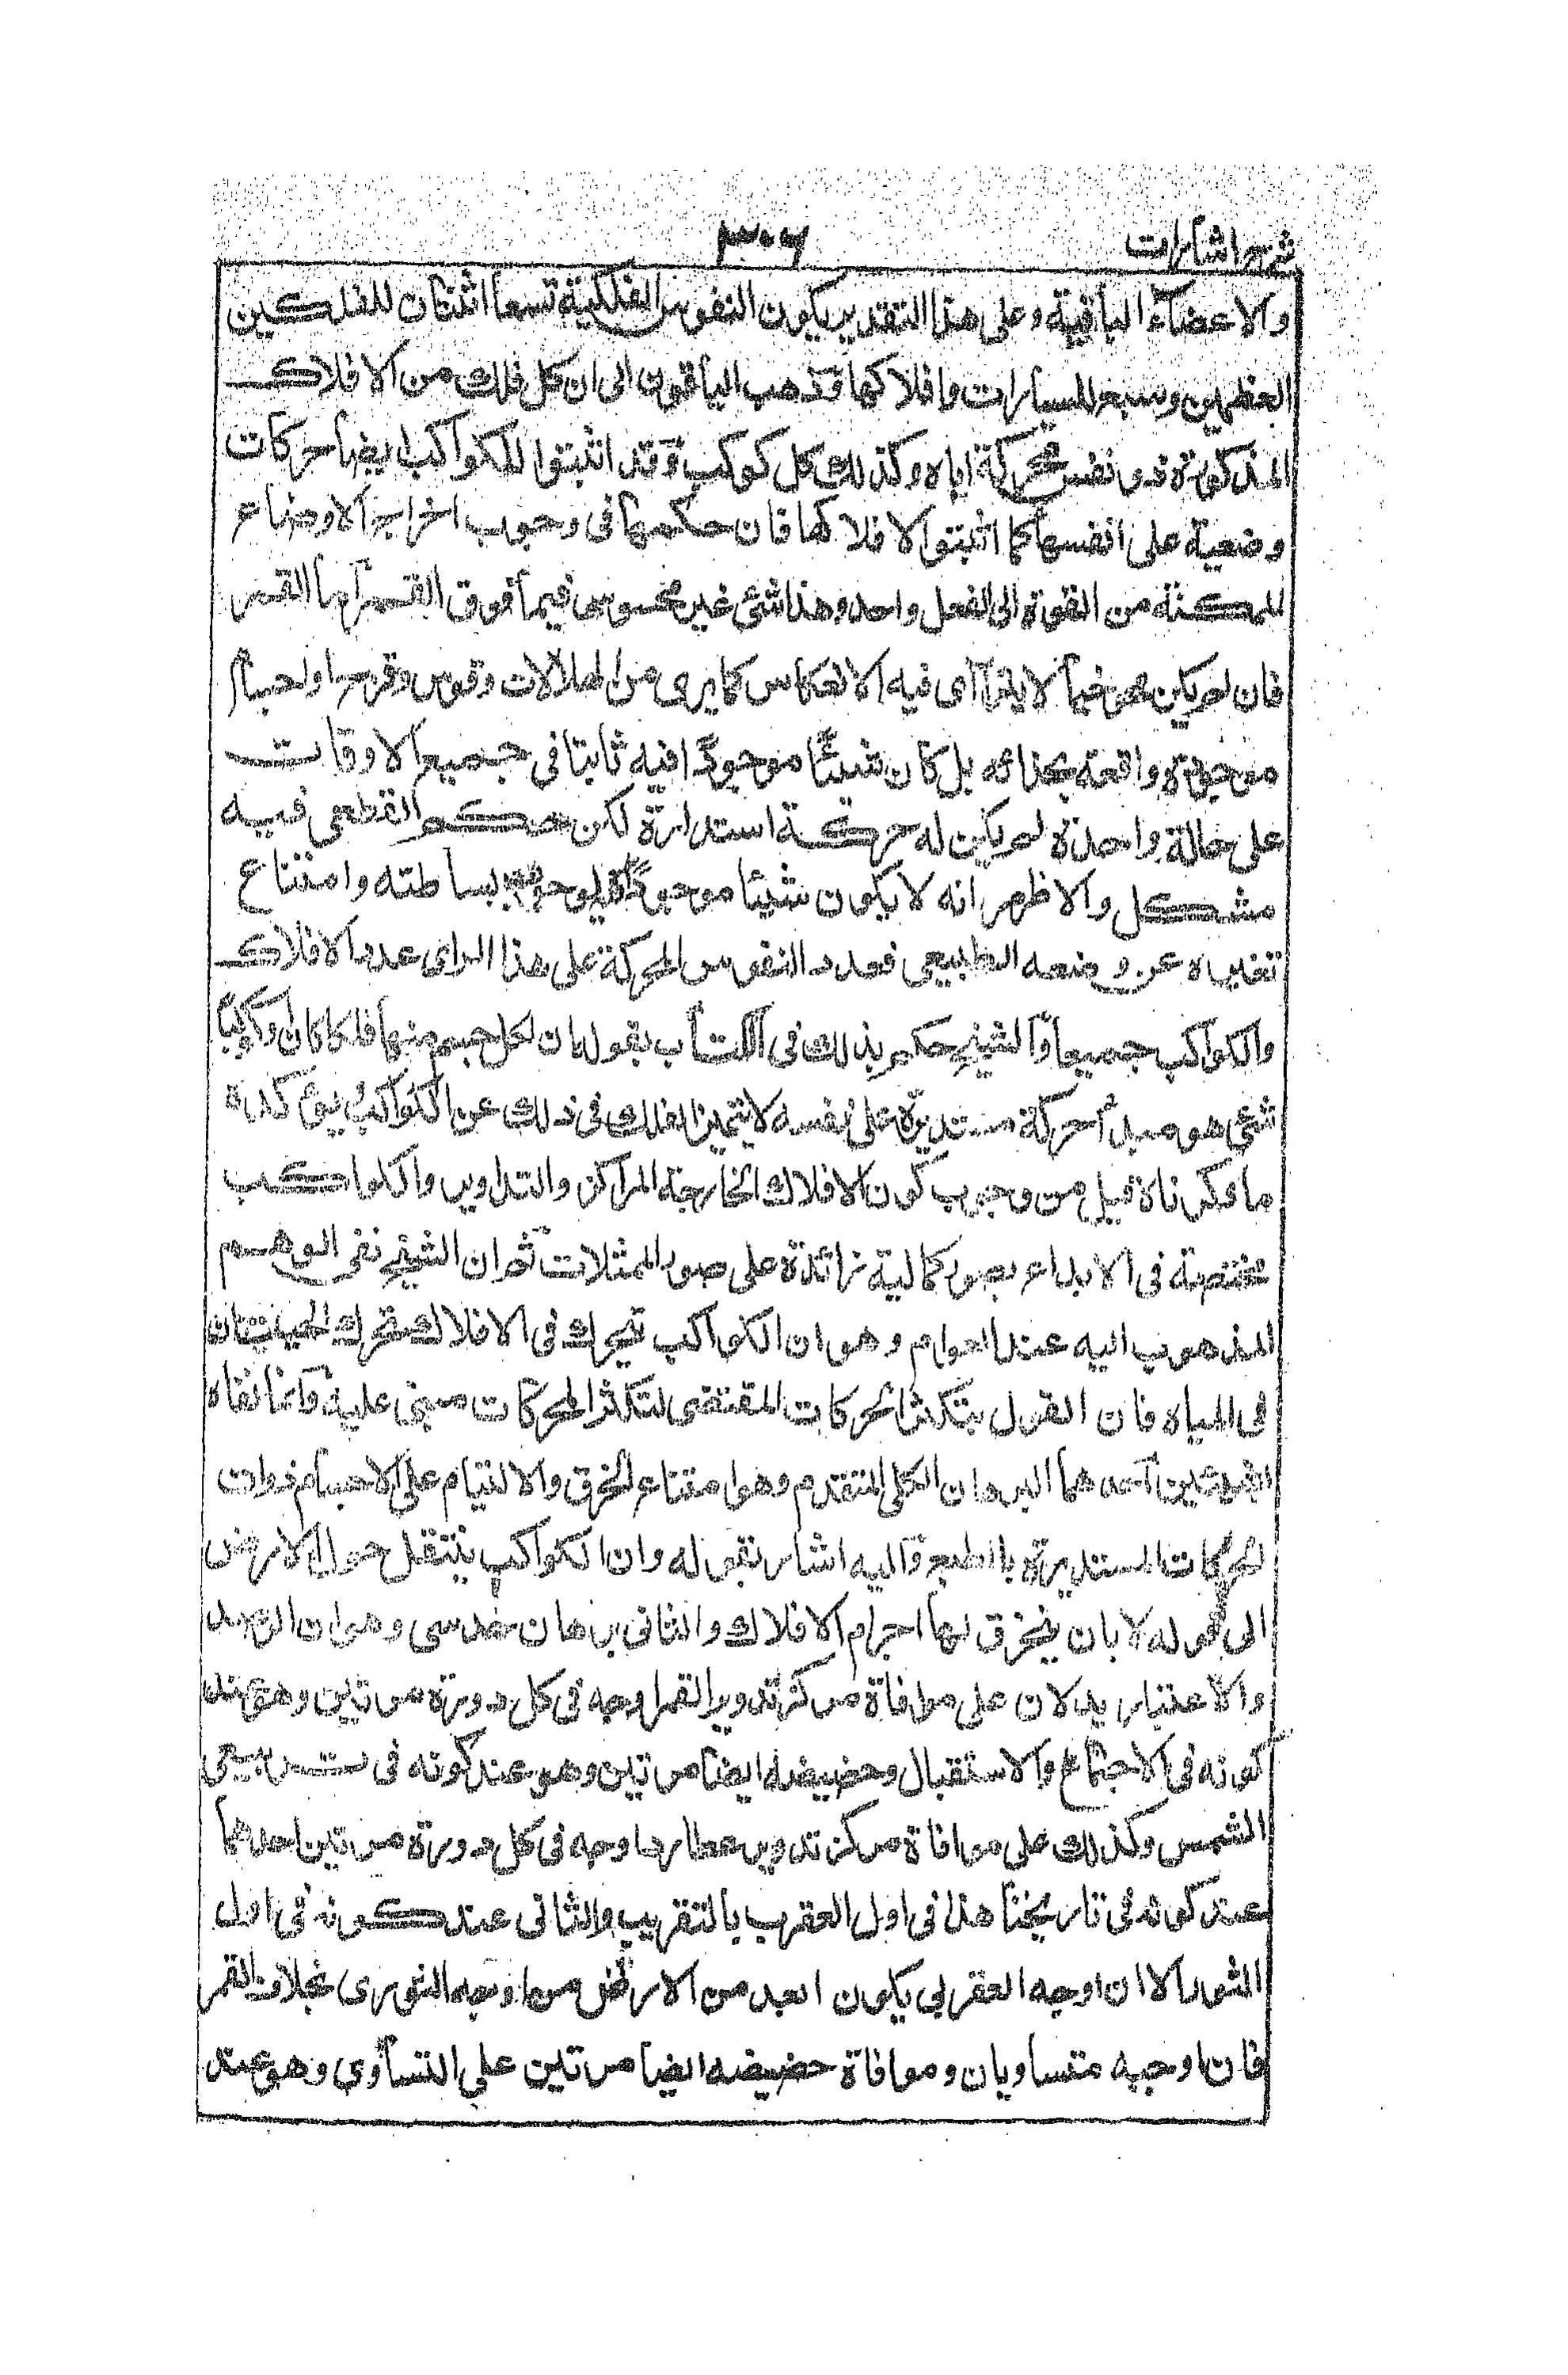 شرح اشارات
٣٠٦
والاعضآء الباقية وعلى هذا التقدير يكون النفوس الفلكية تسعا اثنتان للفلكين
العظيمين وسبعر للسيارات وافلاكها وذهب الباقون الى ان كل فلك من الافلاك
المذكورة ذو نفس محركة اياه وكذلك كل كوكب وقد اثبتوا للكواكب ايضا حركات
وضعية على انفسها كما اثبتوا لافلاكها فان حكمهما فى وجوب اخراج الاوضاع
الممكنة من القوة الى الفعل واحد وهذا شئ غير محسوس فيما فوق القمر اما القمر
فان لم يكن محوه خيالا يترآاى فيه الانعكاس كما يرى من الهالات وقوس وقزح او اجساما
موجودة واقعة بحذائه بل كان شيئا موجودا فيه ثابتا فى جميع الاوقات
على حالة واحدة لم يكن له حركة استدارة لكن حكم القطعى فيه
مشكل والاظهر انه لا يكون شيئا موجودا لوجوب بساطته وامتناع
تغيره عن وضعه الطبيعى فعدد النفوس المحركة على هذا الراى عدد الافلاك
والكواكب جميعا والشيخ حكم بذلك فى الكتاب بقوله ان لكل جسم منها فلكا كان او كوكبا
شئ هو مبدأ حركة مستديرة على نفسه لا يتميز الفلك فى ذلك عن الكواكب
ما ذكرناه قبل من وجوب كون الافلاك الخارجة المراكز والتداوير والكواكب
مختصة فى الابداع بصور كمالية زائدة على صور الممثلات ثم ان الشيخ نفى الوهم
المذهوب اليه عند العوام وهو ان الكواكب تتحرك فى الافلاك تحرك الحيتان
فى المياه فان القول بتكثر الحركات المقتضى لتكثر المحركات مبنى عليه وانما نفاه
بشيئين احدهما البرهان الكلى المتقدم وهو امتناع الخرق والالتيام على الاجسام ذوات
الحركات المستديرة بالطبع واليه اشار بقوله وان الكواكب ينتقل حول الارض
الى قوله لا بان ينخرق لها اجرام الافلاك والثانى برهان حدسى وهو ان الرصد
والاعتبار يدلان على موافاة مركز تدوير القمر اوجه فى كل دورة مرتين وهو عند
كونه فى الاجتماع والاستقبال وحضيضه ايضا مرتين وهو عند كونه فى تربيعى
الشمس وكذلك على موافاة مركز تدوير عطارد اوجه فى كل دورة مرتين احدهما
عند كونه فى تاريخنا هذا فى اول العقرب بالتقريب والثانى عند كونه فى اول
الثور الا ان اوجه العقربى يكون ابعد من الارض من اوجه الثورى بخلاف القمر
فان اوجيه متساويان وموافاة حضيضه ايضا مرتين على التساوى وهو عند